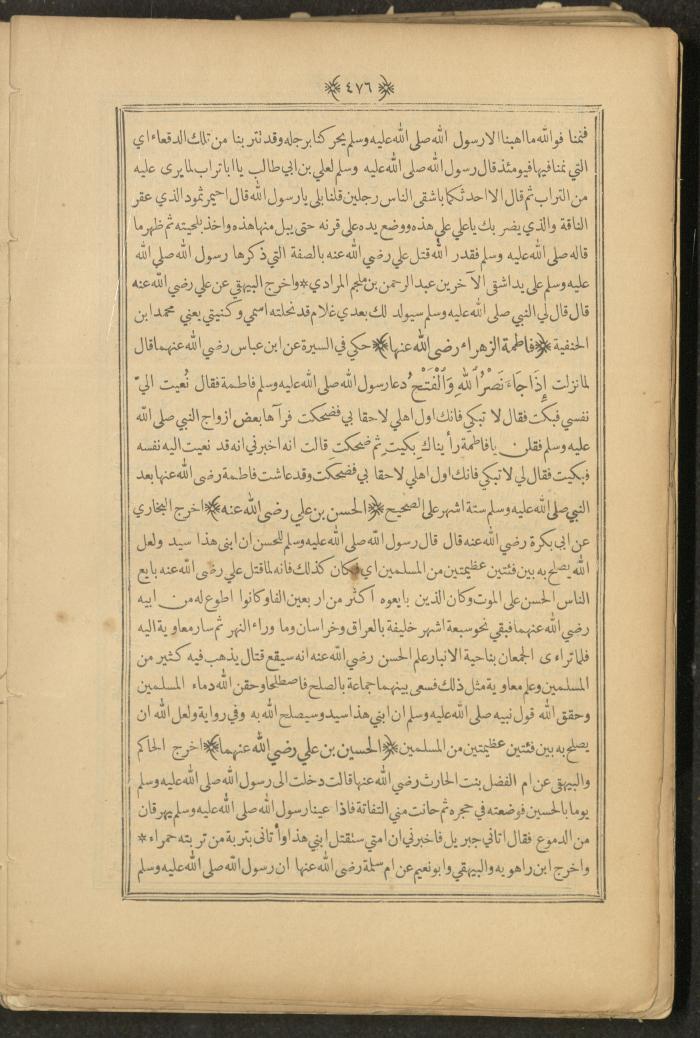 ﴿ ٤٧٦ ﴾
فنمنا فوالله ما اهبنا الا رسول الله صلى الله عليه وسلم يحركنا برجله وقد نتربنا من تلك الدقعاء اي
التي نمنا فيها فيومئذ قال رسول الله صلى الله عليه وسلم لعلي بن ابي طالب يا ابا تراب لما يرى عليه
من التراب ثم قال الا احدثكما باشقى الناس رجلين قلنا بلى يا رسول الله قال احيمر ثمود الذي عقر
الناقة والذي يضربك يا علي على هذه ووضع يده على قرنه حتى يبل منها هذه واخذ بلحيته ثم ظهر ما
قاله صلى الله عليه وسلم فقدر الله قتل علي رضي الله عنه بالصفة التي ذكرها رسول الله صلى الله
عليه وسلم على يد اشقى الآخرين عبد الرحمن بن ملجم المرادي * واخرج البيهقي عن علي رضي الله عنه
قال قال لي النبي صلى الله عليه وسلم سيولد لك بعدي غلام قد نحلته اسمي وكنيتي يعني محمد ابن
الحنفية ﴿ فاطمة الزهراء رضي الله عنها ﴾ حكي في السيرة عن ابن عباس رضي الله عنهما قال
لما نزلت إِذَا جَاءَ نَصْرُ اللهِ وَالْفَتْحُ دعا رسول الله صلى الله عليه وسلم فاطمة فقال نُعيت اليّ
نفسي فبكت فقال لا تبكي فانك اول اهلي لاحقا بي فضحكت فرآها بعض ازواج النبي صلى الله
عليه وسلم فقلن يا فاطمة رأيناكِ بكيتِ ثم ضحكتِ قالت انه اخبرني انه قد نعيت اليه نفسه
فبكيت فقال لي لا تبكي فانك اول اهلي لاحقا بي فضحكت وقد عاشت فاطمة رضي الله عنها بعد
النبي صلى الله عليه وسلم ستة اشهر على الصحيح ﴿ الحسن بن علي رضي الله عنه ﴾ اخرج البخاري
عن ابي بكرة رضي الله عنه قال قال رسول الله صلى الله عليه وسلم للحسن ان ابني هذا سيد ولعل
الله يصلح به بين فئتين عظيمتين من المسلمين اي فكان كذلك فانه لما قتل علي رضي الله عنه بايع
الناس الحسن على الموت وكان الذين بايعوه اكثر من اربعين الفا وكانوا اطوع له من ابيه
رضي الله عنهما فبقي نحو سبعة اشهر خليفة بالعراق وخراسان وما وراء النهر ثم سار معاوية اليه
فلما تراءى الجمعان بناحية الانبار علم الحسن رضي الله عنه انه سيقع قتال يذهب فيه كثير من
المسلمين وعلم معاوية مثل ذلك فسعى بينهما جماعة بالصلح فاصطلحا وحقن الله دماء المسلمين
وحقق الله قول نبيه صلى الله عليه وسلم ان ابني هذا سيد وسيصلح الله به وفي رواية ولعل الله ان
يصلح به بين فئتين عظيمتين من المسلمين ﴿ الحسين بن علي رضي الله عنهما ﴾ اخرج الحاكم
والبيهقي عن ام الفضل بنت الحارث رضي الله عنها قالت دخلت الى رسول الله صلى الله عليه وسلم
يوما بالحسين فوضعته في حجره ثم حانت مني التفاتة فاذا عينا رسول الله صلى الله عليه وسلم يهرقان
من الدموع فقال اتاني جبريل فاخبرني ان امتي ستقتل ابني هذا وأتاني بتربة من تربته حمراء *
واخرج ابن راهويه والبيهقي وابو نعيم عن ام سلمة رضي الله عنها ان رسول الله صلى الله عليه وسلم